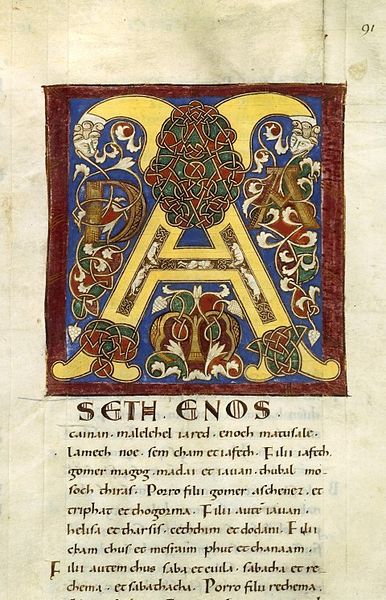 91
A
D A
M
SETH. ENOS.
cainan. malelehel iared. enoch matusale.
lamech noe. sem cham et iafeth. Filii iafeth.
gomer magog. madai et iavan. thubal mo-
soch thiras. Porro filii gomer. aschenez. et
triphat et thogorma. Filii aute iavan.
helisa et tharsis. cethhim et dodani. Filii
cham chus et mesraim phut et chanaam.
Filii autem chus saba et evila. sabatha et re-
chema. et sabathacha. Porro filii rechema.